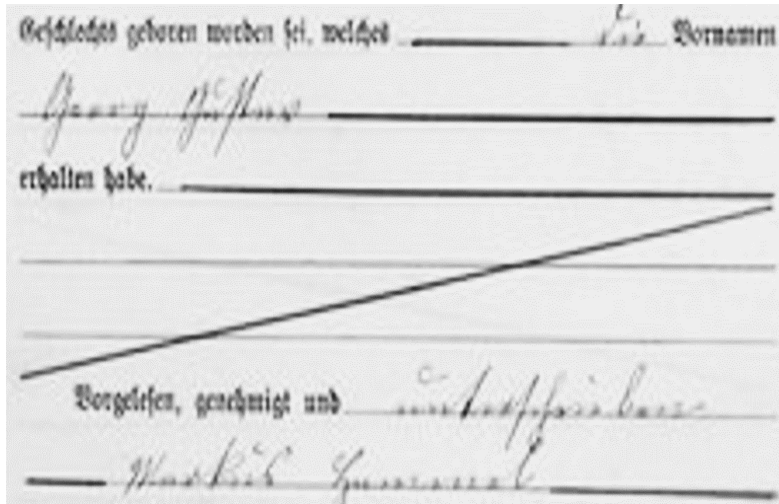 Geschlechts geboren worden sei, welches die Vornamen
Georg Gustav
erhalten habe.
Vorgelesen, genehmigt und unterschrieben
Markus Hummel